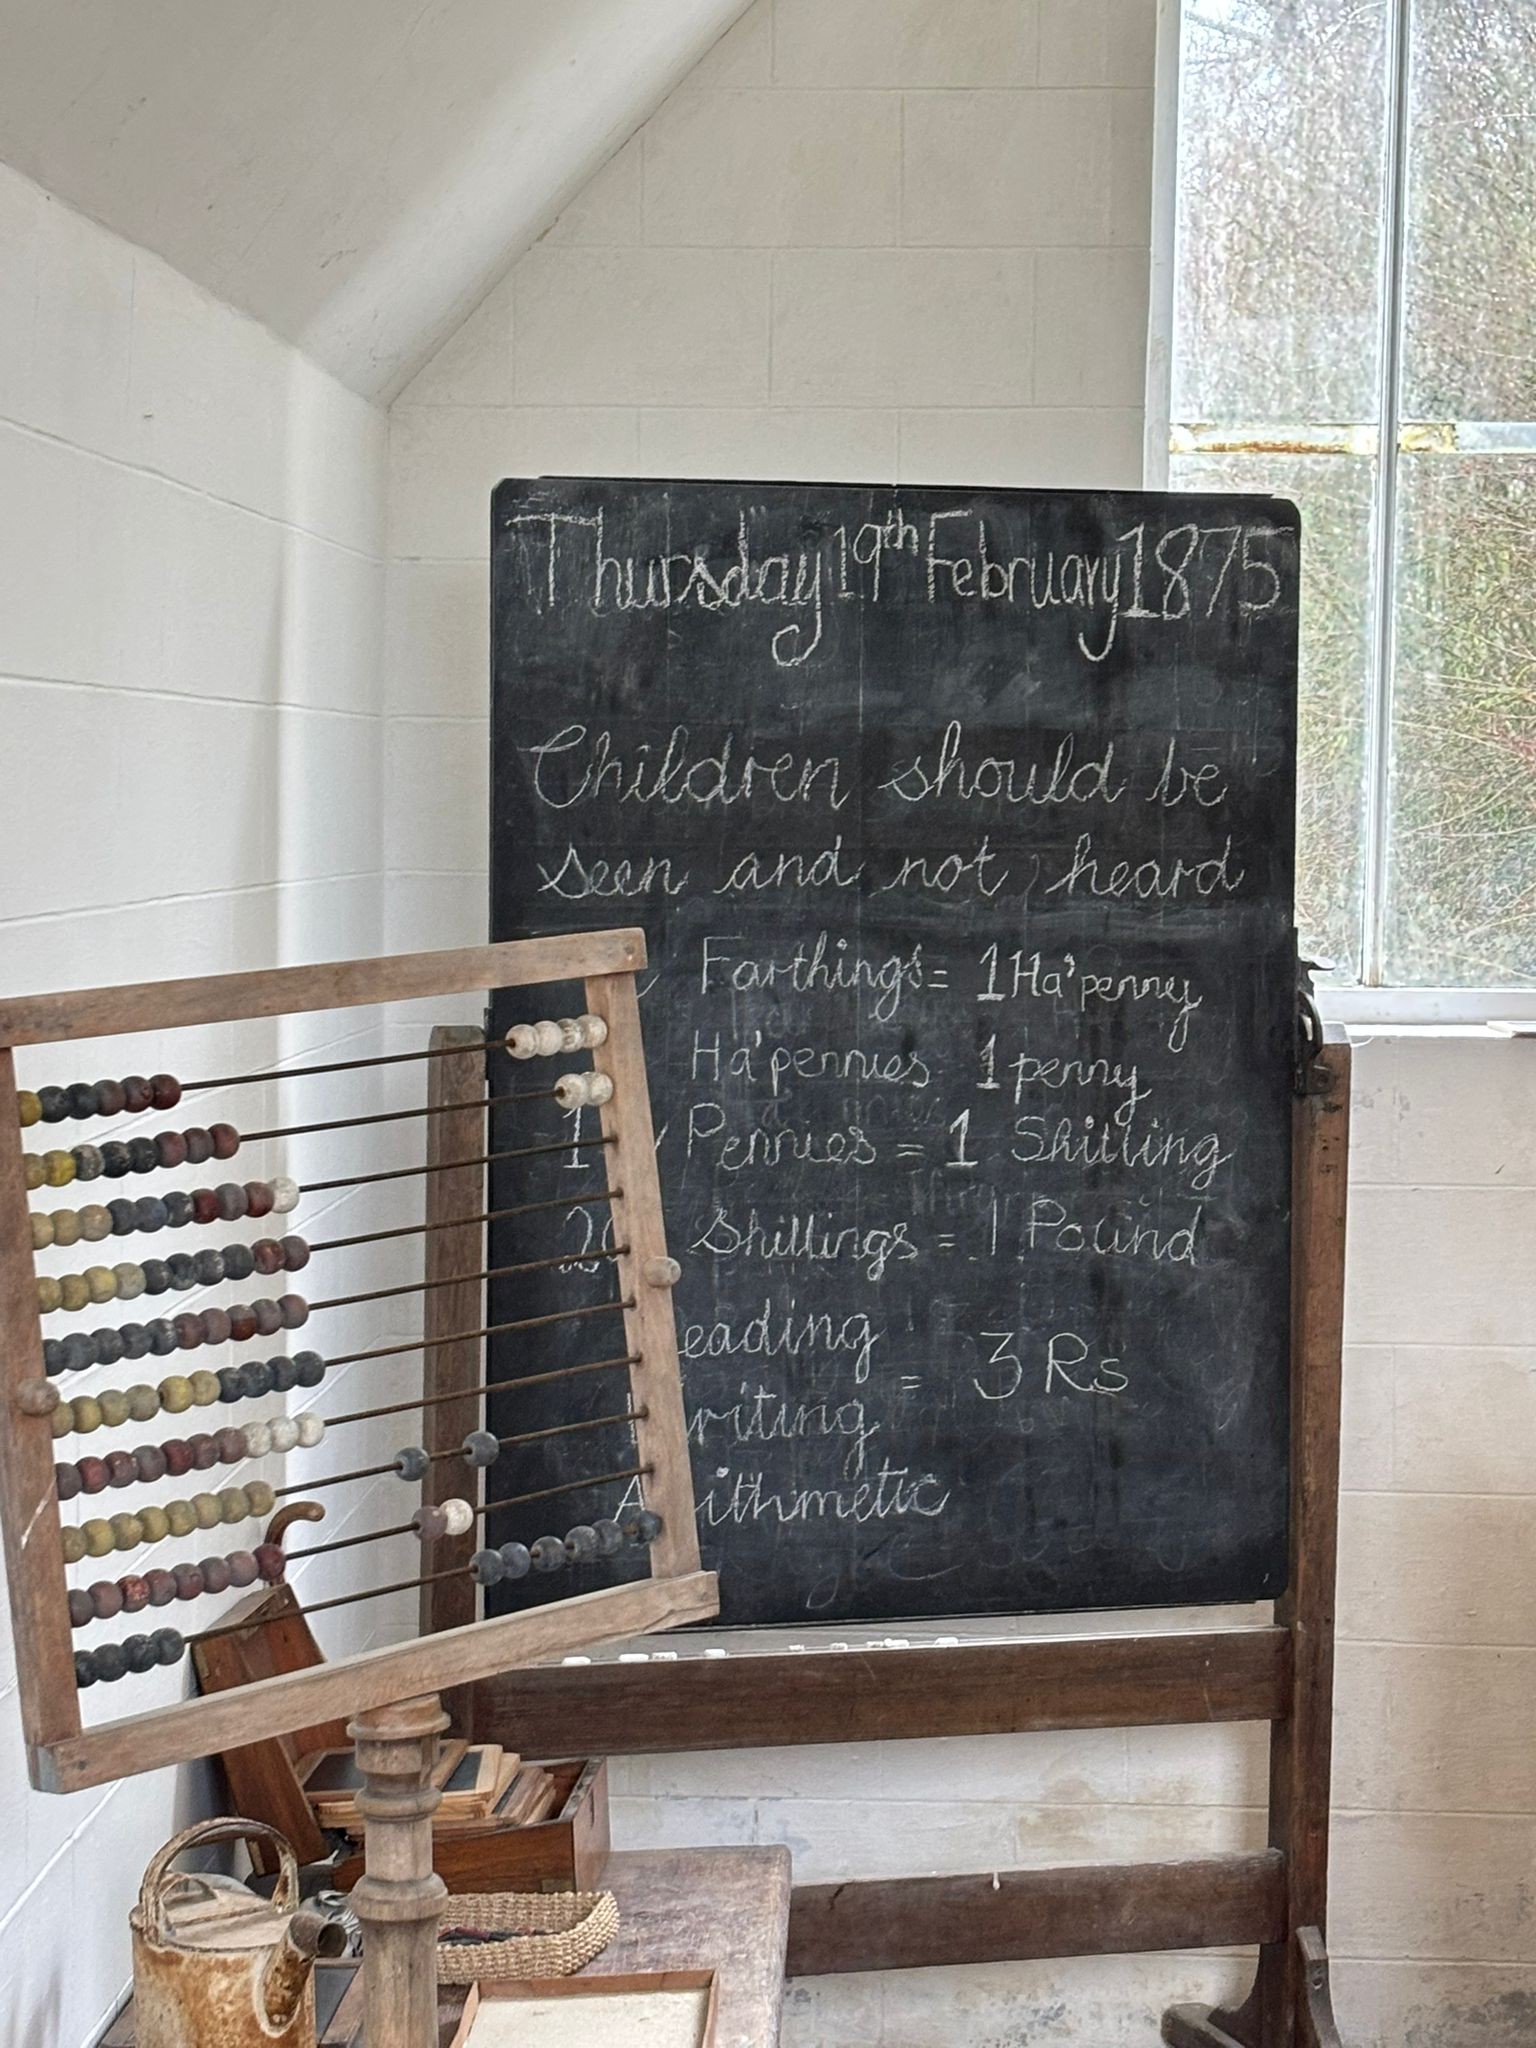 Thursday 19th February 1875
Children should be
seen and not heard
Farthings = 1 Ha'penny
Ha'pennies 1 penny
Pennies = 1 Shilling
20 Shillings = 1 Pound
eading
= 3 Rs
riting
Arithmetic